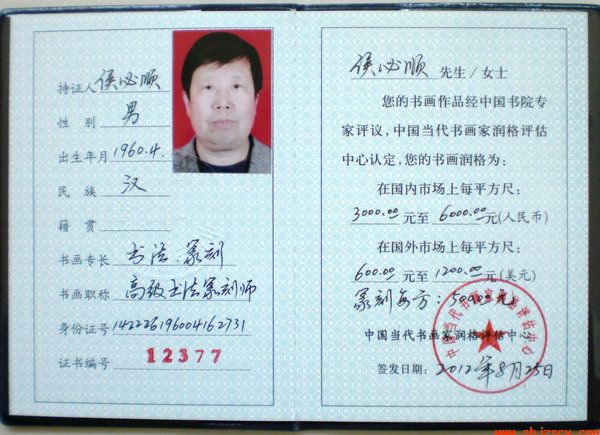 持证人 侯必顺
性 别 男
出生年月 1960.4.
民 族 汉
籍 贯
书画专长 书法.篆刻
书画职称 高级书法篆刻师
身份证号 142226196004162731
证书编号 12377
侯必顺 先生/女士
您的书画作品经中国书院专
家评议，中国当代书画家润格评估
中心认定，您的书画润格为：
在国内市场上每平方尺：
3000.00 元至 6000.00 元(人民币)
在国外市场上每平方尺：
600.00 元至 1200.00 元(美元)
篆刻每方：500.00元
中国当代书画家润格评估中心
签发日期：2012年8月25日
中国当代书画家润格评估中心